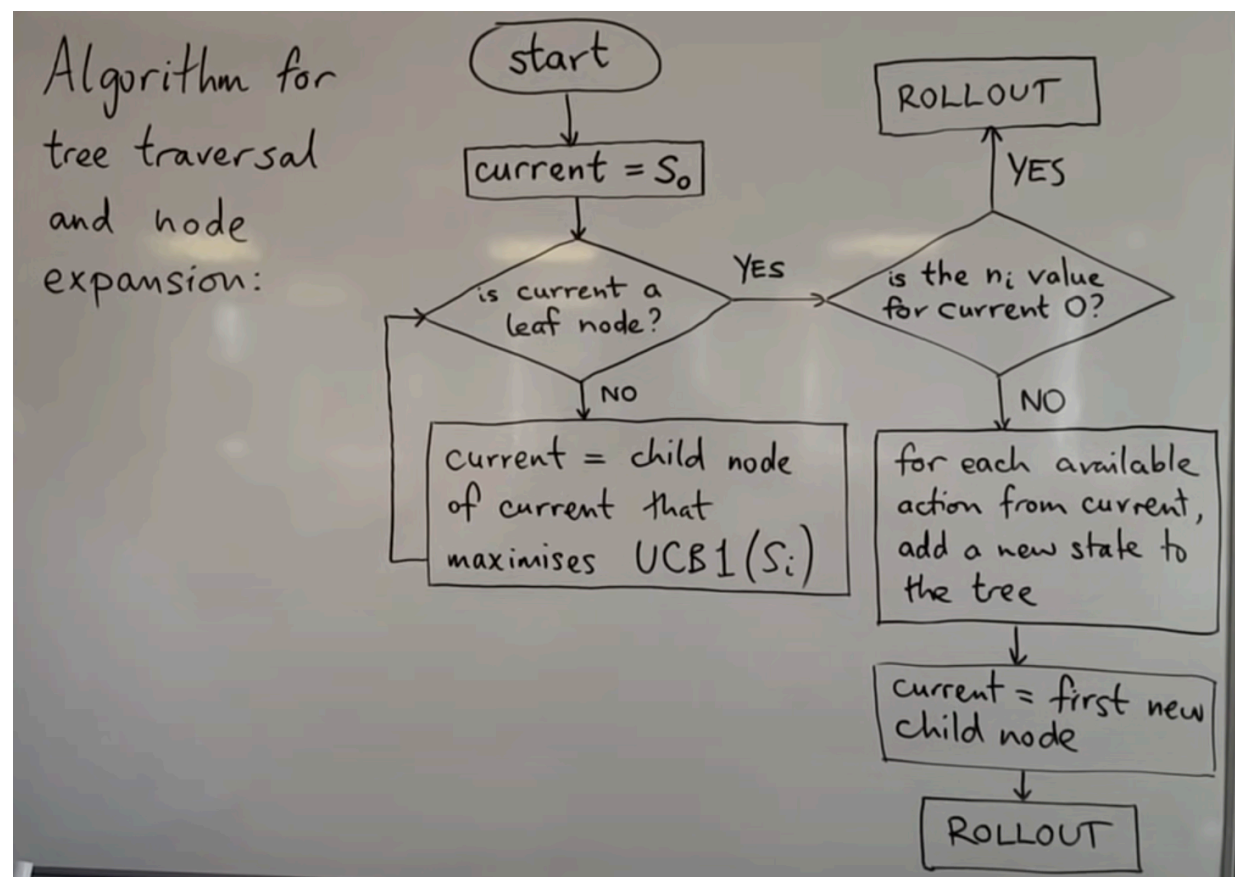 Algorithm for
tree traversal
and node
expansion:
start
current = S₀
is current a
leaf node?
YES
NO
current = child node
of current that
maximises UCB1(Sᵢ)
is the nᵢ value
for current 0?
YES
ROLLOUT
NO
for each available
action from current,
add a new state to
the tree
current = first new
child node
ROLLOUT